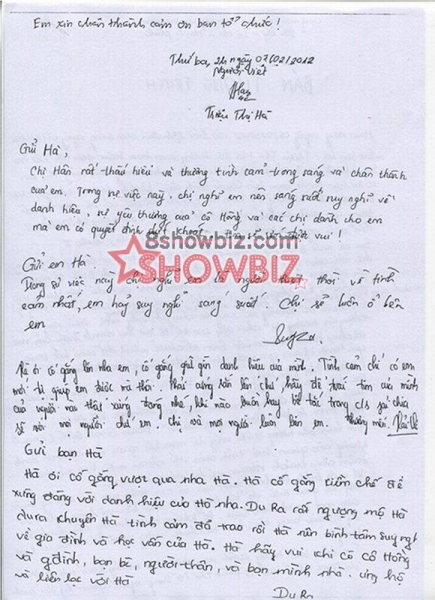 Em xin chân thành cảm ơn ban tổ chức!
Thứ ba, 2h ngày 07/02/2012
Người viết
Triệu Thị Hà
Gửi Hà,
Chị Hân rất thấu hiểu và thương tình cảm trong sáng và chân thành
của em. Trong sự việc này, chị nghĩ em nên sáng suốt suy nghĩ về
danh hiệu, sự yêu thương của cô Hồng và các chị dành cho em
mà em có quyết định dứt khoát vui!
8showbiz.com
SHOWBIZ
Gửi em Hà
Trong sự việc này chị nghĩ em là người thiệt thòi về tình
cảm nhất, em hãy suy nghĩ sáng suốt. Chị sẽ luôn ở bên
em
Hà ơi cố gắng lên nha em, cố gắng giữ gìn danh hiệu của mình. Tình cảm chỉ có em
mới tự giúp em được mà thôi. Phải cứng rắn lên chứ, hãy để trái tim của mình
của người nào thật xứng đáng nhé, khi nào buồn hay bế tắc trong c/s cứ chia
sẻ với mọi người chứ em. Chị và mọi người luôn bên em. Thương mến.
Gửi bạn Hà
Hà ơi cố gắng vượt qua nha Hà. Hà cố gắng kiềm chế để
xứng đáng với danh hiệu của Hà nha. Du Ra rất ngượng mộ Hà
Dura khuyên Hà tình cảm đã trao rồi Hà nên bình tâm suy nghĩ
về gia đình và học vấn của Hà. Hà hãy vui khi có cô Hồng
và gđình, bạn bè, người thân, và bạn mình nhà. ủng hộ
và liên lạc với Hà
Du Ra